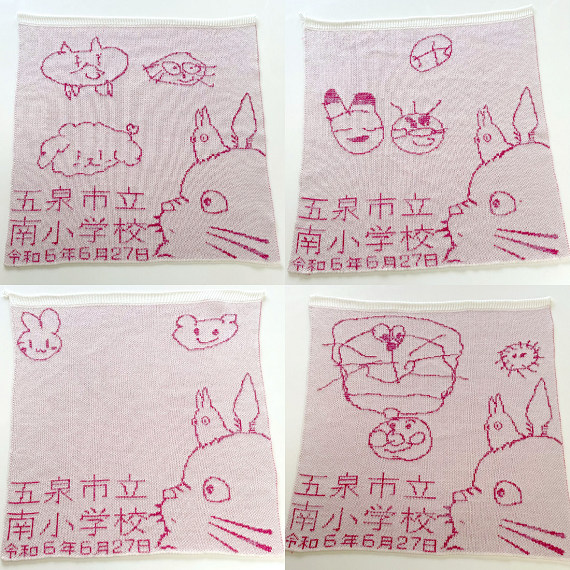 五泉市立
南小学校
令和6年6月27日
五泉市立
南小学校
令和6年6月27日
五泉市立
南小学校
令和6年6月27日
五泉市立
南小学校
令和6年6月27日